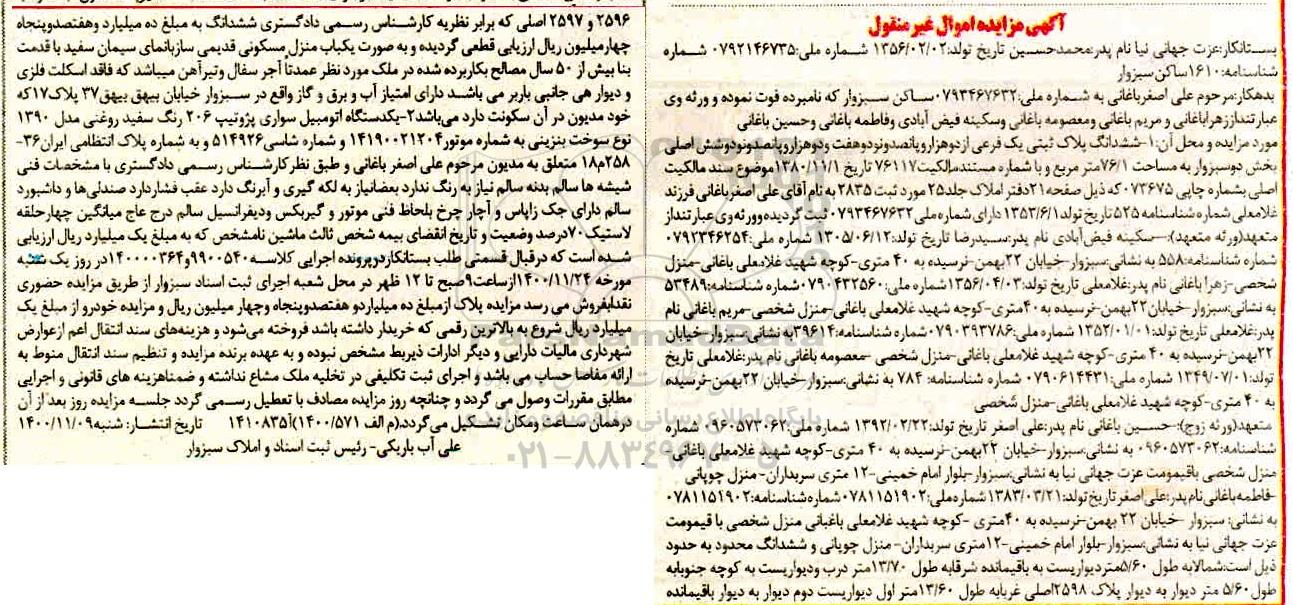 آگهی مزایده اموال غیر منقول
بستانکار:عزت جهانی نیا نام پدر:محمدحسین تاریخ تولد:۱۳۵۶/۰۲/۰۲ شماره ملی:۰۷۹۲۱۴۶۷۳۵ شماره
شناسنامه:۱۶۱۰ساکن سبزوار
بدهکار:مرحوم علی اصغرباغانی به شماره ملی:۰۷۹۳۴۶۷۶۳۲ساکن سبزوار که نامبرده فوت نموده و ورثه وی
عبارتنداززهراباغانی و مریم باغانی ومعصومه باغانی وسکینه فیض آبادی وفاطمه باغانی وحسین باغانی
مورد مزایده و محل آن:۱-ششدانگ پلاک ثبتی یک فرعی ازدوهزاروپانصدونودوهفت ودوهزاروپانصدونودوشش اصلی
بخش دوسبزوار به مساحت ۷۶/۱متر مربع و با شماره مستندمالکیت۷۶۱۱۷ تاریخ ۱۳۸۰/۱۱/۱ موضوع سند مالکیت
اصلی بشماره چاپی ۰۷۳۶۷۵ که ذیل صفحه۲۱دفتر املاک جلد۲۵مورد ثبت ۲۸۳۵ به نام آقای علی اصغرباغانی فرزند
غلامعلی شماره شناسنامه ۵۲۵ تاریخ تولد ۱۳۵۳/۶/۱ دارای شماره ملی ۰۷۹۳۴۶۷۶۳۲ ثبت گردیده وورثه وی عبارتنداز
متعهد(ورثه متعهد):-سکینه فیض‌آبادی نام پدر:سیدرضا تاریخ تولد:۱۳۰۵/۰۶/۱۲ شماره ملی:۰۷۹۲۳۴۶۲۵۴
شماره شناسنامه:۵۵۸ به نشانی:سبزوار-خیابان ۲۲بهمن-نرسیده به ۴۰ متری-کوچه شهید غلامعلی باغانی-منزل
شخصی-زهرا باغانی نام پدر:غلامعلی تاریخ تولد:۱۳۵۶/۰۴/۰۳شماره ملی:۰۷۹۰۴۳۲۵۶۰شماره شناسنامه:۵۳۴۸۹
به نشانی:سبزوار-خیابان۲۲بهمن-نرسیده به ۴۰متری-کوچه شهید غلامعلی باغانی-منزل شخصی-مریم باغانی نام
پدر:غلامعلی تاریخ تولد:۱۳۵۲/۰۱/۰۱ شماره ملی:۰۷۹۰۳۹۳۷۸۶ شماره شناسنامه:۳۹۶۱۴به نشانی:سبزوار-خیابان
۲۲بهمن-نرسیده به ۴۰ متری-کوچه شهید غلامعلی باغانی-منزل شخصی -معصومه باغانی نام پدر:غلامعلی تاریخ
تولد:۱۳۴۹/۰۷/۰۱ شماره ملی:۰۷۹۰۶۱۴۴۳۱ شماره شناسنامه: ۷۸۴ به نشانی:سبزوار-خیابان ۲۲بهمن-نرسیده
به ۴۰ متری-کوچه شهید غلامعلی باغانی-منزل شخصی
متعهد(ورثه زوج):-حسین باغانی نام پدر:علی اصغر تاریخ تولد:۱۳۹۲/۰۲/۲۲ شماره ملی:۰۹۶۰۵۷۳۰۶۲ شماره
شناسنامه:۰۹۶۰۵۷۳۰۶۲ به نشانی:سبزوار-خیابان ۲۲بهمن-نرسیده به ۴۰ متری-کوچه شهید غلامعلی باغانی-
منزل شخصی باقیمومت عزت جهانی نیا به نشانی:سبزوار-بلوار امام خمینی-۱۲ متری سربداران- منزل چوپانی
-فاطمه باغانی نام پدر:علی اصغر تاریخ تولد:۱۳۸۳/۰۳/۲۱ شماره ملی:۰۷۸۱۱۵۱۹۰۲ شماره شناسنامه:۰۷۸۱۱۵۱۹۰۲
به نشانی: سبزوار -خیابان ۲۲ بهمن-نرسیده به ۴۰متری -کوچه شهید غلامعلی باغبانی منزل شخصی با قیمومت
عزت جهانی نیا به نشانی:سبزوار-بلوار امام خمینی-۱۲متری سربداران- منزل چوپانی و ششدانگ محدود به حدود
ذیل است:شمالابه طول ۵/۶۰متردیواریست به باقیمانده شرقابه طول ۱۳/۷۰متر درب ودیواریست به کوچه جنوبابه
طول۵/۶۰ متر دیوار به دیوار پلاک ۲۵۹۸اصلی غربابه طول ۱۳/۶۰متر اول دیواریست دوم دیوار به دیوار باقیمانده
۲۵۹۶ و ۲۵۹۷ اصلی که برابر نظریه کارشناس رسمی دادگستری ششدانگ به مبلغ ده میلیارد وهفتصدوپنجاه
چهارمیلیون ریال ارزیابی قطعی گردیده و به صورت یکباب منزل مسکونی قدیمی سازبانمای سیمان سفید با قدمت
بنا بیش از ۵۰ سال مصالح بکاربرده شده در ملک مورد نظر عمدتا آجر سفال وتیرآهن میباشد که فاقد اسکلت فلزی
و دیوار هی جانبی باربر می باشد دارای امتیاز آب و برق و گاز واقع در سبزوار خیابان بیهق بیهق۳۷ پلاک۱۷که
خود مدیون در آن سکونت دارد می‌باشد۲-یکدستگاه اتومبیل سواری پژوتیپ ۲۰۶ رنگ سفید روغنی مدل ۱۳۹۰
نوع سوخت بنزینی به شماره موتور۱۴۱۹۰۰۲۱۲۰۴ و شماره شاسی۵۱۴۹۲۶ و به شماره پلاک انتظامی ایران۳۶-
۲۵۸م۱۸ متعلق به مدیون مرحوم علی اصغر باغانی و طبق نظرکارشناس رسمی دادگستری با مشخصات فنی
شیشه ها سالم بدنه سالم نیاز به رنگ ندارد بعضانیاز به لکه گیری و آبرنگ دارد عقب فشاردارد صندلی‌ها و داشبورد
سالم دارای جک زاپاس و آچار چرخ بلحاظ فنی موتور و گیربکس ودیفرانسیل سالم درج عاج میانگین چهارحلقه
لاستیک۷۰درصد وضعیت و تاریخ انقضای بیمه شخص ثالث ماشین نامشخص که به مبلغ یک میلیارد ریال ارزیابی
شده است که درقبال قسمتی طلب بستانکاردرپرونده اجرایی کلاسه۹۹۰۰۵۴۰و۱۴۰۰۰۰۳۶۴در روز یک شنبه
مورخه ۱۴۰۰/۱۱/۲۴ازساعت۹صبح تا ۱۲ ظهر در محل شعبه اجرای ثبت اسناد سبزوار از طریق مزایده حضوری
نقدابفروش می رسد مزایده پلاک ازمبلغ ده میلیاردو هفتصدوپنجاه وچهار میلیون ریال و مزایده خودرو از مبلغ یک
میلیارد ریال شروع به بالاترین رقمی که خریدار داشته باشد فروخته می‌شود و هزینه‌های سند انتقال اعم ازعوارض
شهرداری مالیات دارایی و دیگر ادارات ذیربط مشخص نبوده و به عهده برنده مزایده و تنظیم سند انتقال منوط به
ارائه مفاصا حساب می باشد و اجرای ثبت تکلیفی در تخلیه ملک مشاع نداشته و ضمناهزینه های قانونی و اجرایی
مطابق مقررات وصول می گردد و چنانچه روز مزایده مصادف با تعطیل رسمی گردد جلسه مزایده روز بعد از آن
درهمان ساعت ومکان تشکیل می‌گردد.(م الف ۱۴۰۰/۵۷۱)آ۱۴۱۰۸۳۵ تاریخ انتشار: شنبه۱۴۰۰/۱۱/۰۹
علی آب باریکی- رئیس ثبت اسناد و املاک سبزوار
پایگاه اطلاع رسانی مناقصه و مزایده
۰۲۱-۸۸۳۴۹۶۷۰-۵